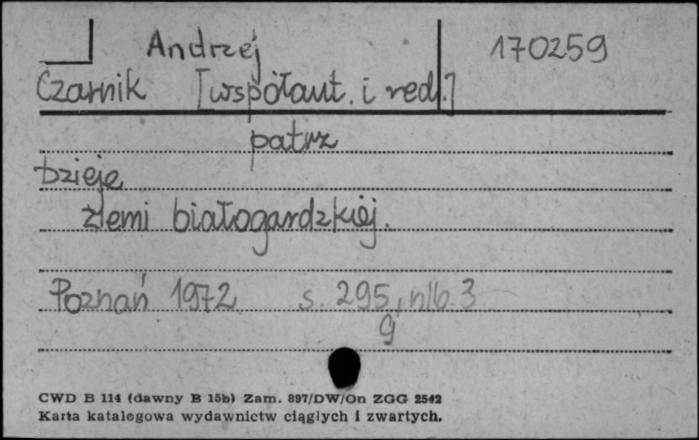 Andrzej 170259
Czarnik [współaut. i red.]
patrz
Dzieje
ziemi białogardzkiej.
Poznań 1972. s. 295, nlb. 3
9
CWD B 114 (dawny B 15b) Zam. 897/DW/On ZGG 2542
Karta katalogowa wydawnictw ciągłych i zwartych.